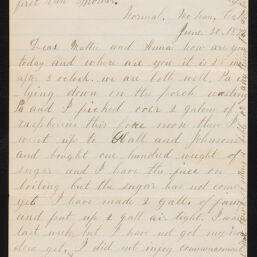 first saw
Normal, McLean, Co Ills
June 30, 18
Dear Mattie and Huma how are you
today and where are you it is
after 3 oclock we are both well, Pa is
lying down on the porch resting
Pa and I picked over 2 galons of
raspberries this fore noon then I
went up to Hall and Johnsons
and bought one hundred weight of
sugar and I have the juce on
boiling but the sugar has not come
yet I have made 2 gall. of jam
and put up 2 gall air tight. I was
last week but I have not got my
done yet. I did not injoy commencement